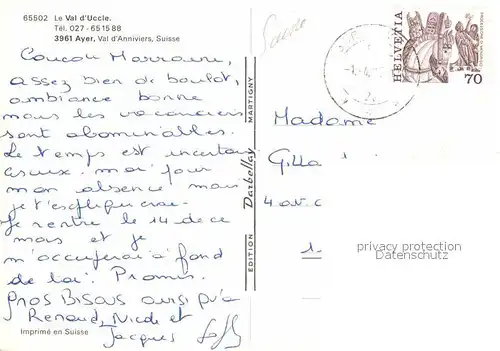 65502 Le Val d'Uccle.
Tél. 027 - 65 15 88
3961 Ayer, Val d'Anniviers, Suisse
Coucou Marraine,
assez bien de boulot,
ambiance bonne
mais les vacanciers
sont abominables.
Le temps est incertain
mon absence mais
je t'expliquerai
Je rentre le 14 de ce
mois et je
m'occuperai à fond
de toi. Promis.
Gros Bisous aussi pr à
Renaud, Nicole et
Jacques
Imprimé en Suisse
EDITION Darbellay MARTIGNY
Suisse
HELVETIA
70
Madame
Gilla
4 av. c
1.
privacy protection
Datenschutz